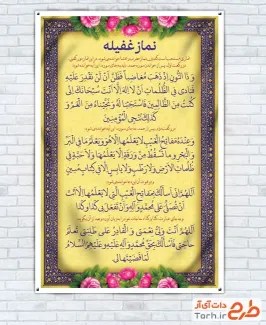 نماز غفیله
وَ ذَا النُّونِ إِذْ ذَهَبَ مُغَاضِباً فَظَنَّ أَنْ لَنْ نَقْدِرَ عَلَيْهِ
فَنَادَى فِي الظُّلُمَاتِ أَنْ لَا إِلَهَ إِلَّا أَنْتَ سُبْحَانَكَ إِنِّي
كُنْتُ مِنَ الظَّالِمِينَ فَاسْتَجَبْنَا لَهُ وَ نَجَّيْنَاهُ مِنَ الْغَمِّ وَ
كَذَلِكَ نُنْجِي الْمُؤْمِنِينَ
وَ عِنْدَهُ مَفَاتِحُ الْغَيْبِ لَا يَعْلَمُهَا إِلَّا هُوَ وَ يَعْلَمُ مَا فِي الْبَرِّ
وَ الْبَحْرِ وَ مَا تَسْقُطُ مِنْ وَرَقَةٍ إِلَّا يَعْلَمُهَا وَ لَا حَبَّةٍ فِي
ظُلُمَاتِ الْأَرْضِ وَ لَا رَطْبٍ وَ لَا يَابِسٍ إِلَّا فِي كِتَابٍ مُبِينٍ
اَللّهُمَّ إِنِّي أَسْأَلُكَ بِمَفَاتِحِ الْغَيْبِ الَّتِي لَا يَعْلَمُهَا إِلَّا أَنْتَ
أَنْ تُصَلِّيَ عَلَى مُحَمَّدٍ وَ آلِهِ وَ أَنْ تَفْعَلَ بِي كَذَا وَ كَذَا
اَللّهُمَّ أَنْتَ وَلِيُّ نِعْمَتِي وَ الْقَادِرُ عَلَى طَلِبَتِي تَعْلَمُ
حَاجَتِي فَأَسْأَلُكَ بِحَقِّ مُحَمَّدٍ وَ آلِهِ عَلَيْهِ وَ عَلَيْهِمُ السَّلَامُ
لَمَّا قَضَيْتَهَا لِي
طرح دات‌آی‌آر
Tarh.ir